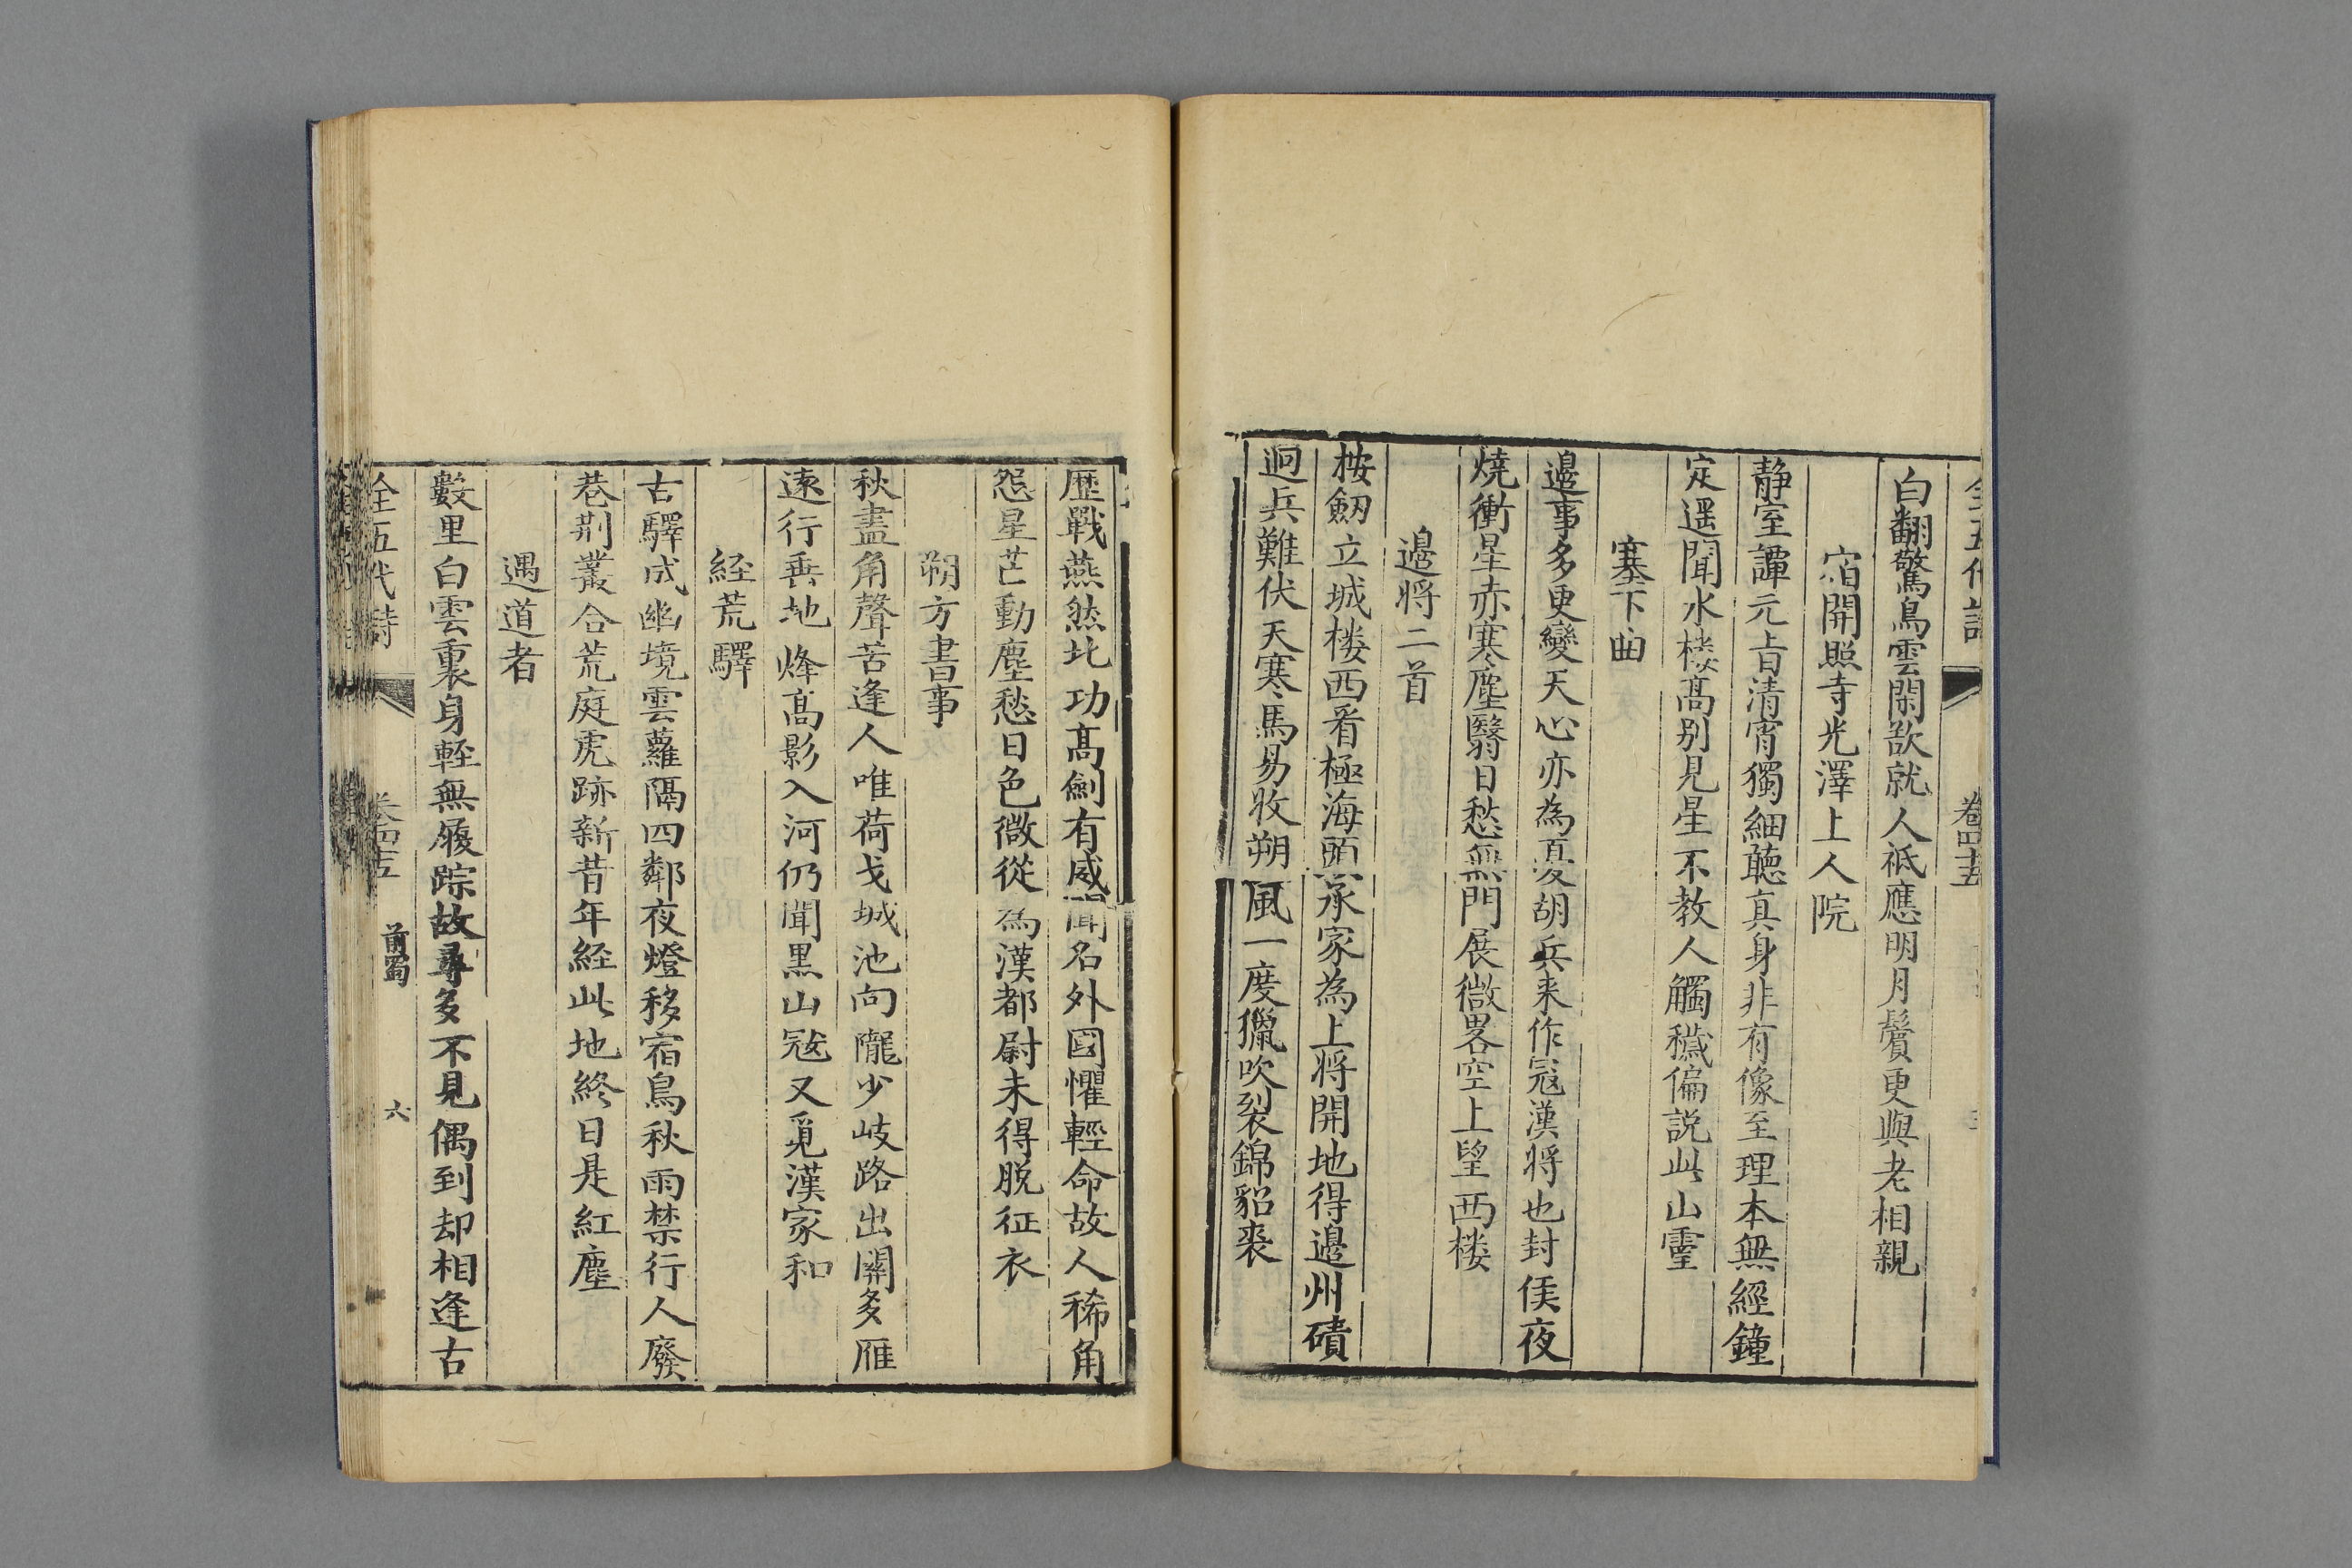 全五代詩 卷四十五
白翻驚鳥雲閑欲就人祇應明月鬢更與老相親
宿開照寺光澤上人院
靜室譚元旨清宵獨細聽真身非有像至理本無經鐘
定遥聞水楼高别見星不教人觸穢偏説此山靈
塞下曲
邊事多更變天心亦為憂胡兵来作冦漢将也封侯夜
燒衝星赤寒塵翳日愁無門展微畧空上望西楼
邊將二首
按劒立城楼西看極海頭承家為上将開地得邉州磧
迥兵難伏天寒馬易收朔風一度獵吹裂錦貂裘
歴戰燕然北功髙劍有威聞名外國懼輕命故人稀角
怨星芒動塵愁日色微從為漢都尉未得脱征衣
朔方書事
秋盡角聲苦逢人唯荷戈城池向隴少岐路出關多雁
遠行垂地烽髙影入河仍聞黒山冦又覓漢家和
経荒驛
古驛成幽境雲蘿隔四鄰夜燈移宿鳥秋雨禁行人廢
巷荆叢合荒庭虎跡新昔年経此地終日是紅塵
遇道者
數里白雲裏身輕無履踪故尋多不見偶到却相逢古
全五代詩 卷四十五 前蜀 六